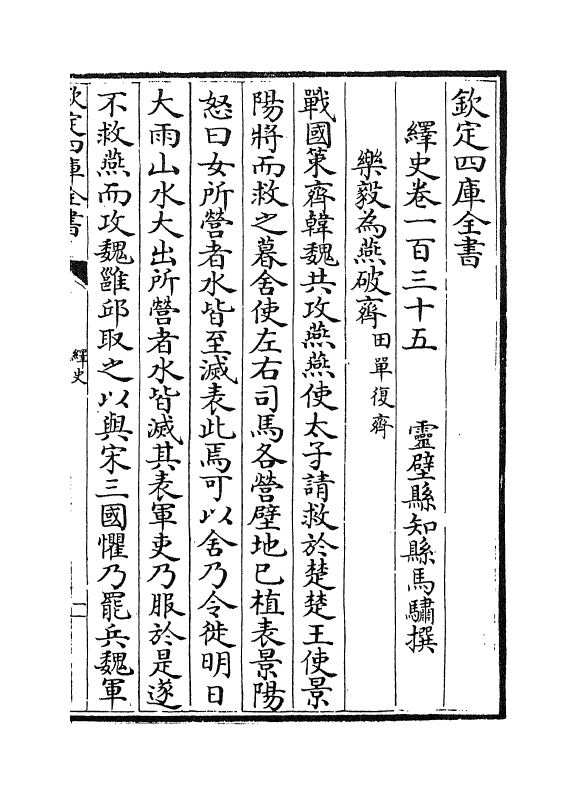 欽定四庫全書
繹史卷一百三十五　靈壁縣知縣馬驌撰
樂毅為燕破齊田單復齊
戰國策齊韓魏共攻燕燕使太子請救於楚楚王使景
陽將而救之暮舍使左右司馬各營壁地已植表景陽
怒曰女所營者水皆至滅表此焉可以舍乃令徙明日
大雨山水大出所營者水皆滅其表軍吏乃服於是遂
不救燕而攻魏雝邱取之以與宋三國懼乃罷兵魏軍
欽定四庫全書
繹史
一